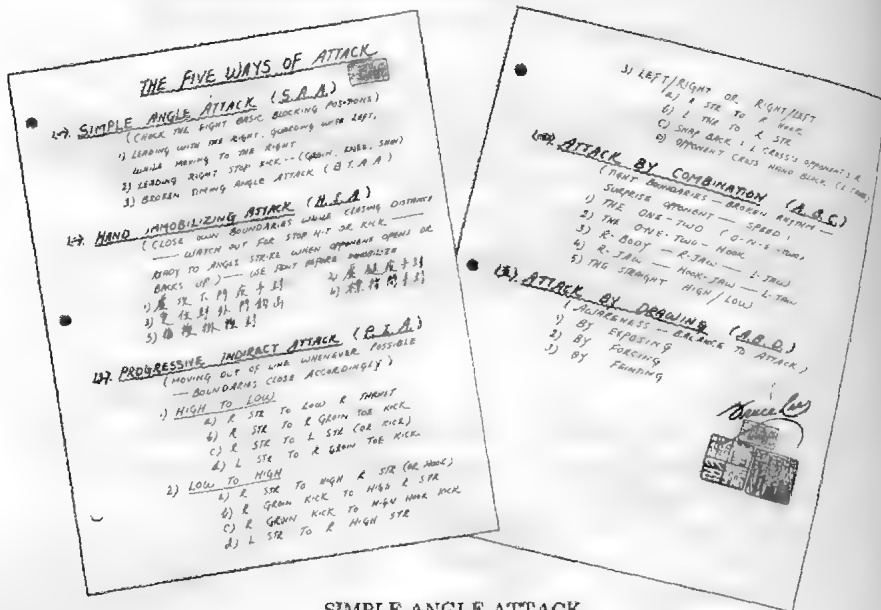 THE FIVE WAYS OF ATTACK
SIMPLE ANGLE ATTACK (S.A.A)
(CHECK THE EIGHT BASIC BLOCKING POSITIONS)
1) LEADING WITH THE RIGHT, GUARDING WITH LEFT,
WHILE MOVING TO THE RIGHT
2) LEADING RIGHT STOP KICK -- (GROIN, KNEE, SHIN)
3) BROKEN TIMING ANGLE ATTACK (B.T.A.A)
HAND IMMOBILIZING ATTACK (H.I.A)
(CLOSE DOWN BOUNDARIES WHILE CLOSING DISTANCE
— WATCH OUT FOR STOP HIT OR KICK —
READY TO ANGLE STRIKE WHEN OPPONENT OPENS OR
BACKS UP) — WE FEINT BEFORE IMMOBILIZE
1)
2)
3)
4)
5)
PROGRESSIVE INDIRECT ATTACK (P.I.A)
(MOVING OUT OF LINE WHENEVER POSSIBLE
— BOUNDARIES CLOSE ACCORDINGLY)
1) HIGH TO LOW
a) R STR TO LOW R THRUST
b) R STR TO R GROIN TOE KICK
c) R STR TO L STR (OR KICK)
d) L STR TO R GROIN TOE KICK
2) LOW TO HIGH
a) R STR TO HIGH R STR (OR HOOK)
b) R GROIN KICK TO HIGH R STR
c) R GROIN KICK TO HIGH HOOK KICK
d) L STR TO R HIGH STR
3) LEFT/RIGHT OR RIGHT/LEFT
a) R STR TO R HOOK
b) L THR TO R STR
c) SNAP BACK & L CROSS'S OPPONENT'S R
d) OPPONENT CROSS HAND BLOCK
ATTACK BY COMBINATION (A.B.C.)
(TIGHT BOUNDARIES — BROKEN RHYTHM —
SURPRISE OPPONENT — SPEED)
1) THE ONE-TWO (O-N-E-TWO)
2) THE ONE-TWO-HOOK
3) R-BODY — R-JAW — L-JAW
4) R-JAW — HOOK-JAW — L-JAW
5) THE STRAIGHT HIGH/LOW
ATTACK BY DRAWING (A.B.D.)
(AWARENESS — BALANCE TO ATTACK)
1) BY EXPOSING
2) BY FORCING
3) BY FEINTING
Bruce Lee
SIMPLE ANGLE ATTACK